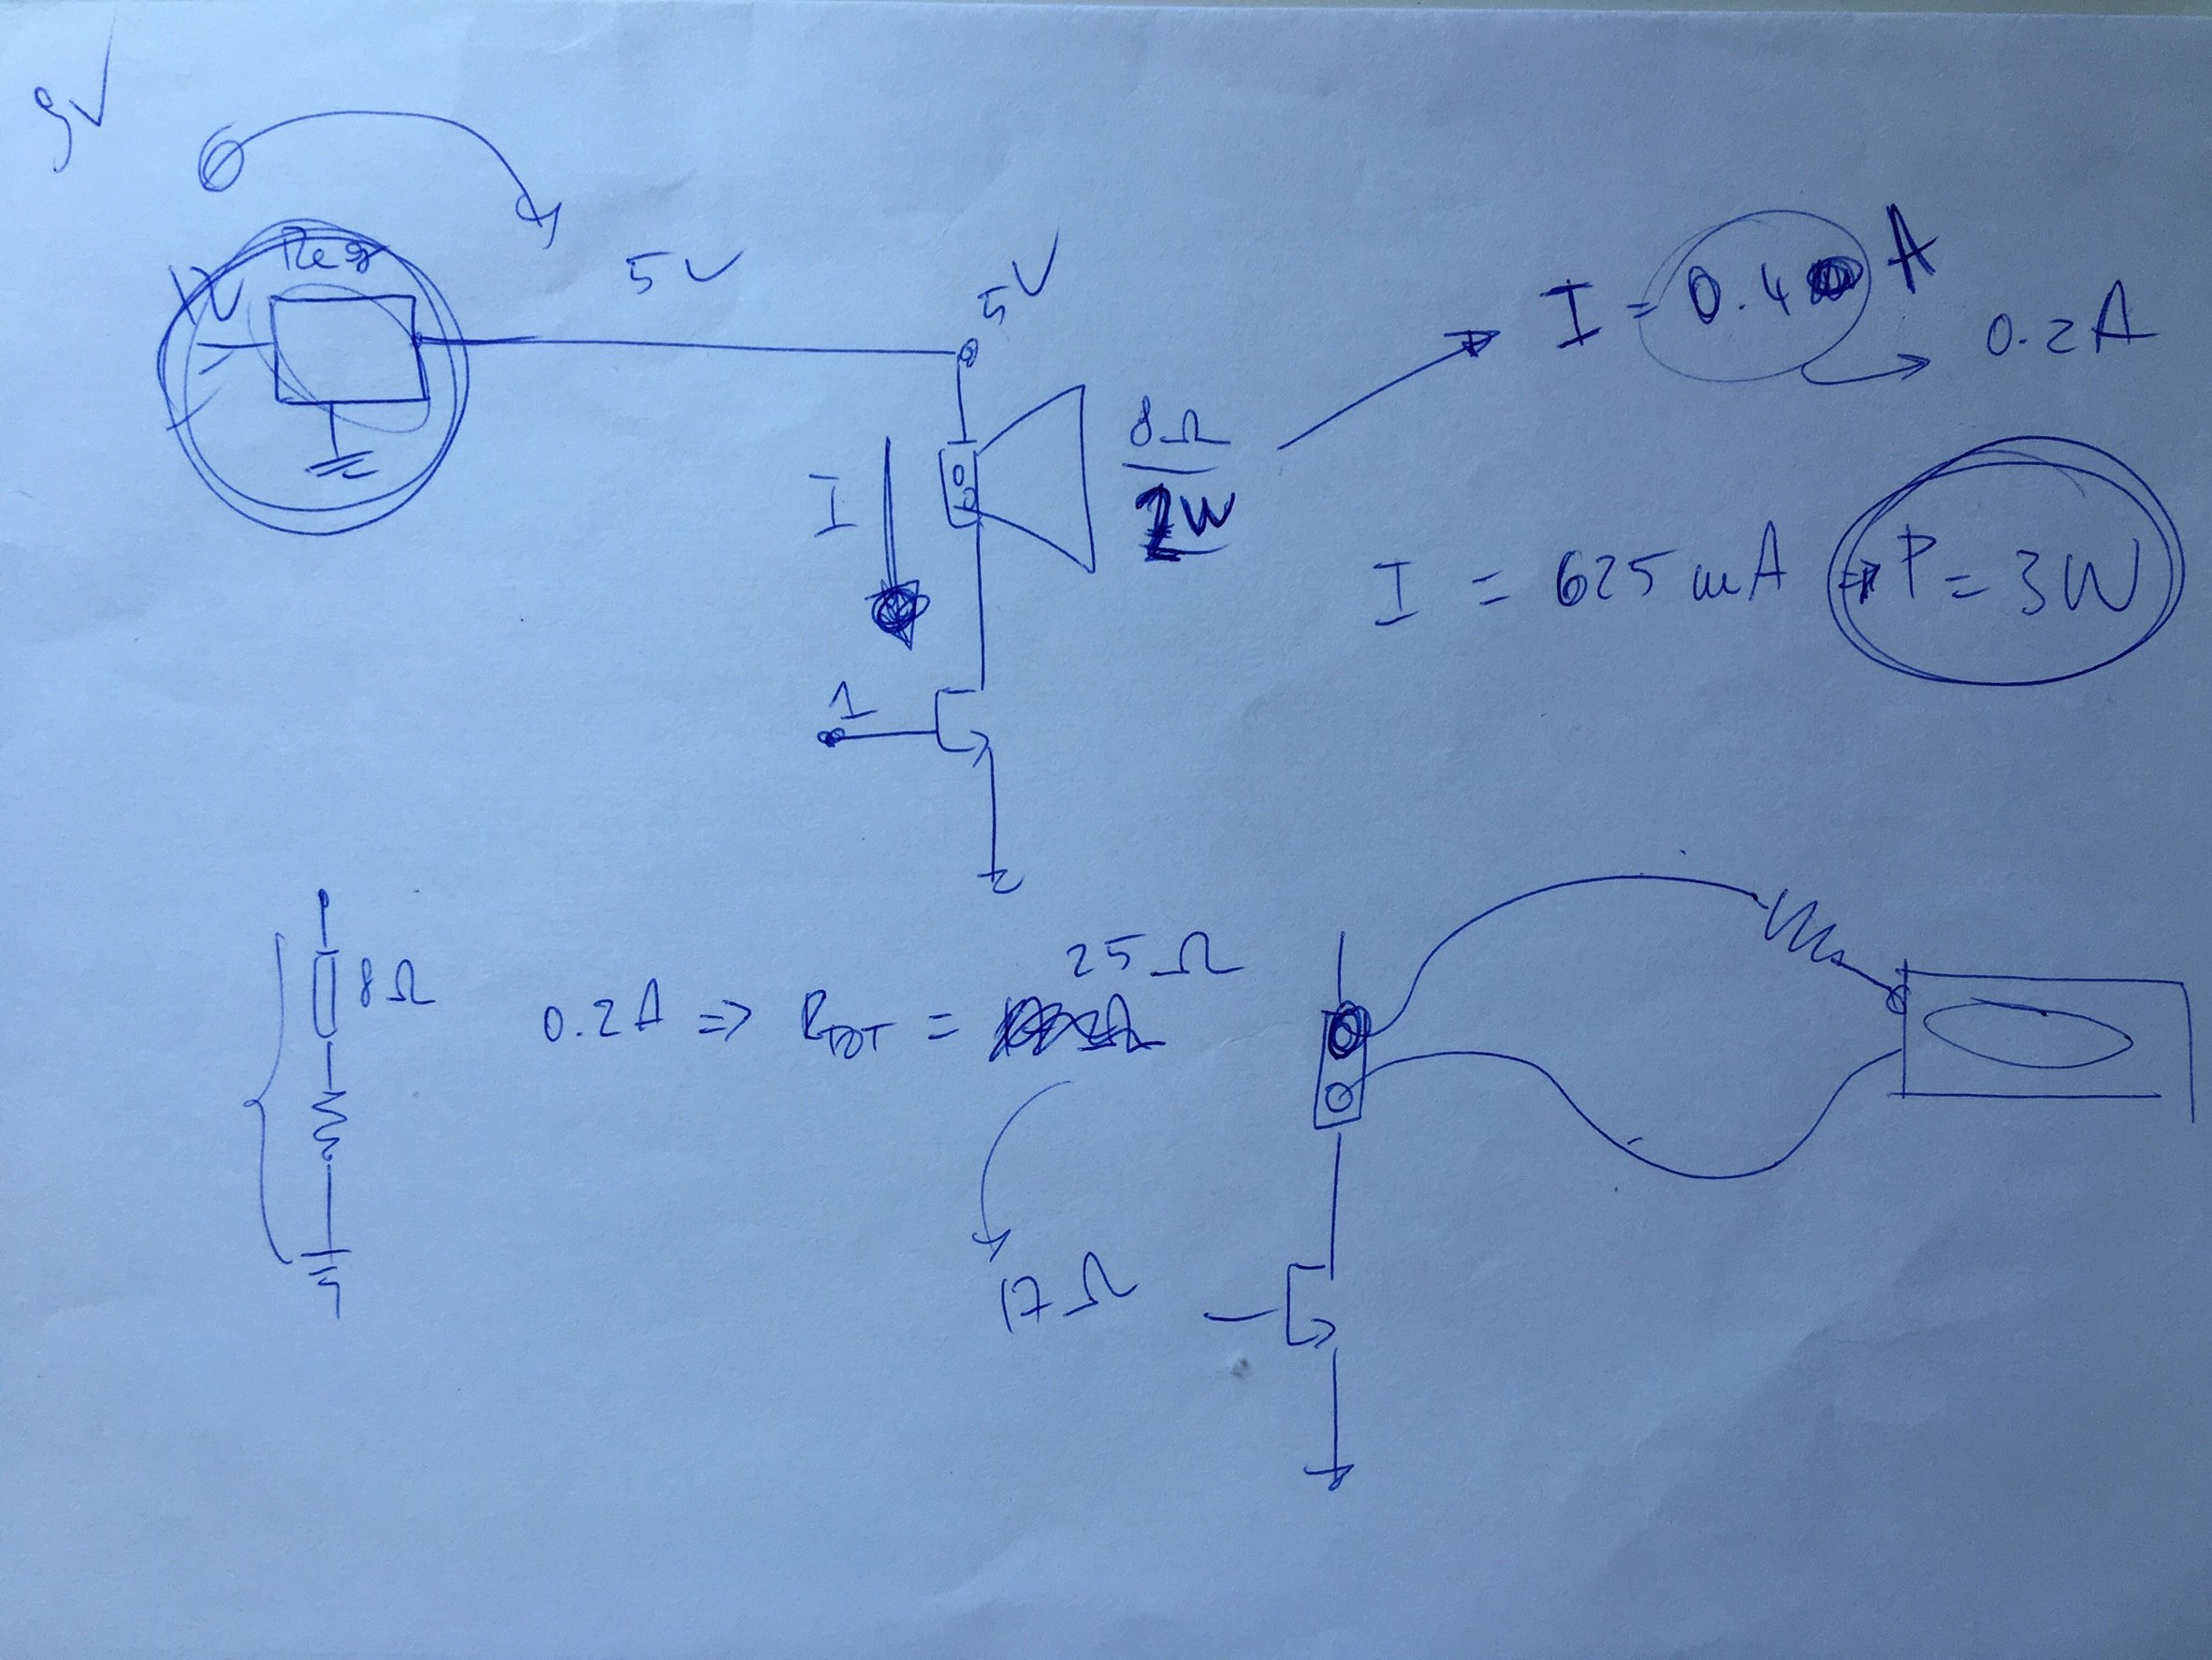 9V
Reg
5V
5V
I = 0.4 A
0.2A
8Ω
2W
I
I = 625 mA → P = 3W
1
8Ω
0.2A ⇒ RTOT = 25Ω
17Ω